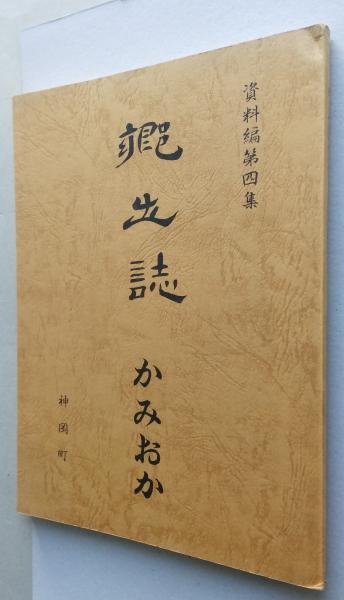 資料編第四集
郷土誌 かみおか
神岡町